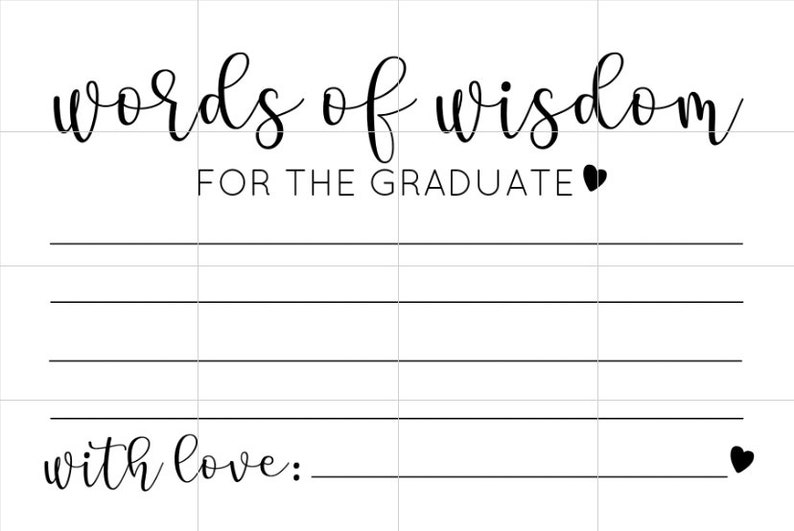 words of wisdom
FOR THE GRADUATE
with love: